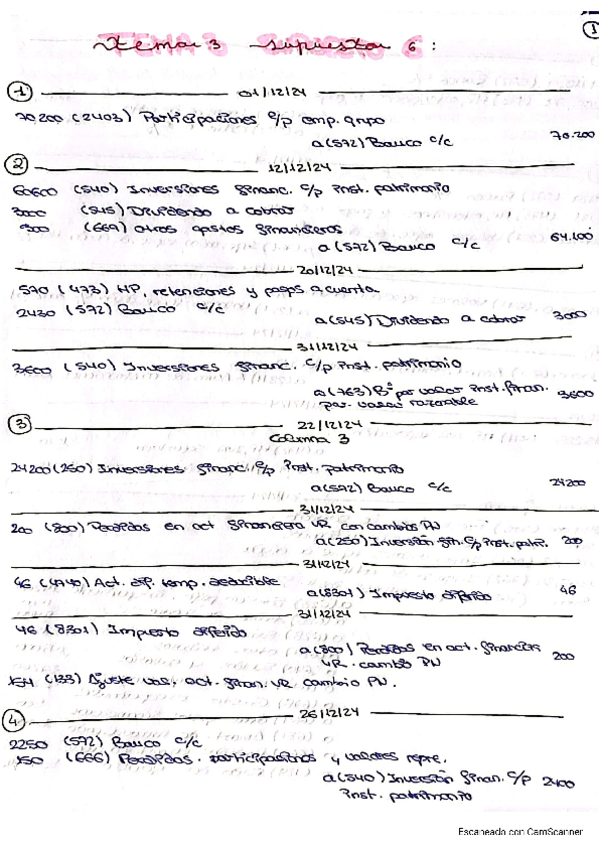 1
Tema 3 supuesto 6 :
1 01/12/24
70.200 (2403) Participaciones c/p emp. grupo
a (572) Banco c/c 70.200
2 12/12/24
60600 (540) Inversiones financ. c/p inst. patrimonio
3000 (545) Dividendo a cobrar
500 (669) otros gastos financieros
a (572) Banco c/c 64.100
20/12/24
570 (473) HP, retenciones y pagos a cuenta
2430 (572) Banco c/c
a (545) Dividendo a cobrar 3000
31/12/24
3600 (540) Inversiones financ. c/p inst. patrimonio
a (763) Bº por valor inst. finan. 3600
por valor razonable
3 22/12/24
Columna 3
24200 (250) Inversiones financ. c/p inst. patrimonio
a (572) Banco c/c 24200
31/12/24
200 (800) Perdidas en act financiera VR con cambios PN
a (250) Inversión fin. c/p inst. patri. 200
31/12/24
46 (4740) Act. dif. temp. deducible
a (8301) Impuesto diferido 46
31/12/24
46 (8301) Impuesto diferido
a (800) Perdidas en act. financiera 200
VR. cambio PN
154 (133) Ajuste val. act. finan. VR cambio PN.
4 26/12/24
2250 (572) Banco c/c
150 (666) Perdidas. participaciones y valores repre.
a (540) Inversión finan. c/p 2400
inst. patrimonio
Escaneado con CamScanner